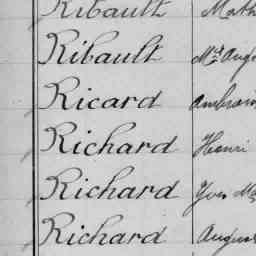 Ribault Math
Ribault Mie Augu
Ricard Ambrois
Richard Henri
Richard Yves Ma
Richard Augus